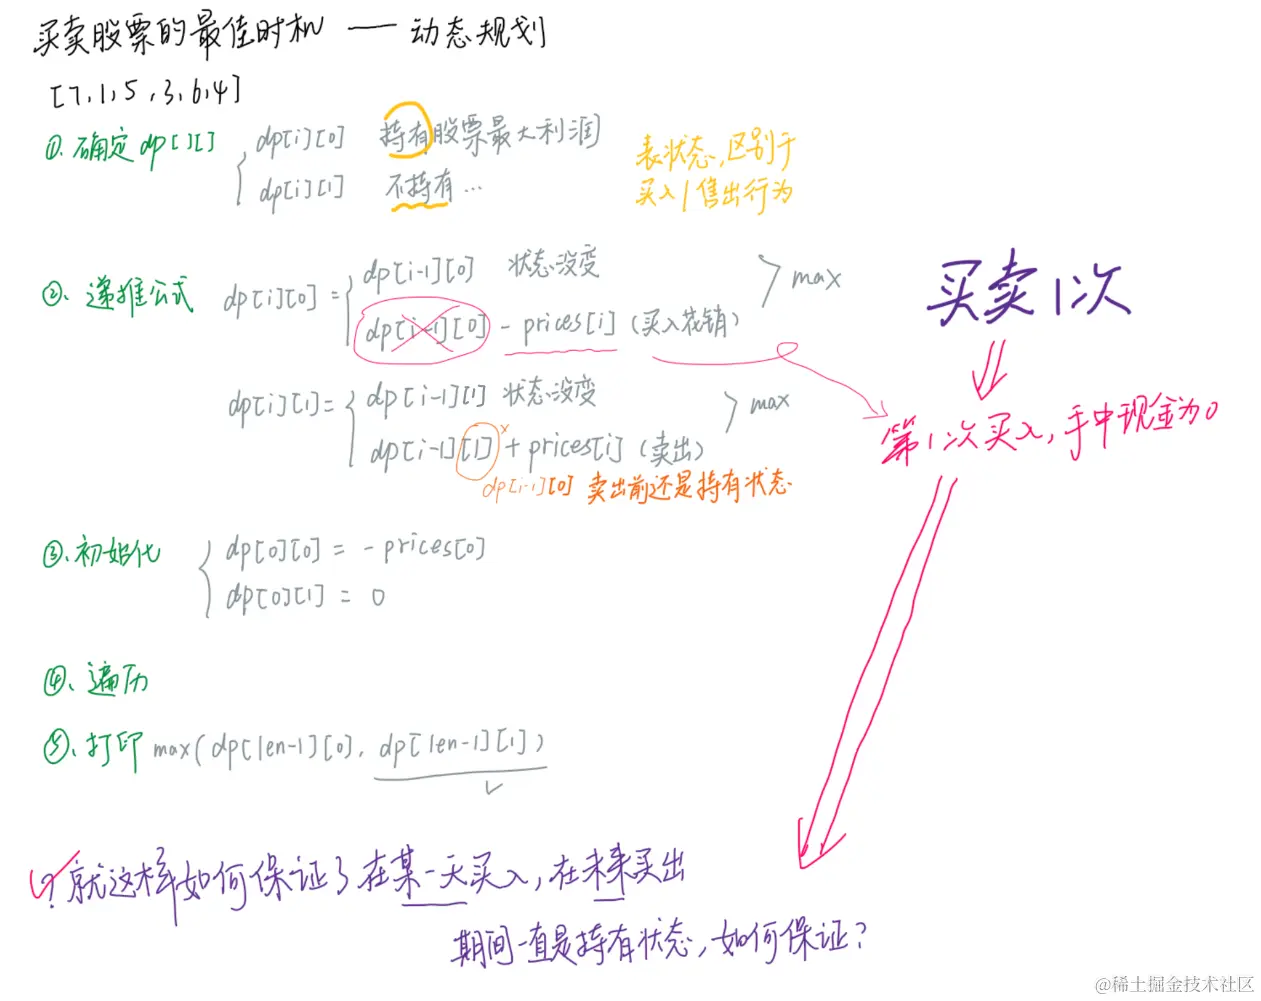 买卖股票的最佳时机 — 动态规划
[7,1,5,3,6,4]
①. 确定dp[][]
dp[i][0] 持有股票最大利润
dp[i][1] 不持有...
表状态,区别于
买入/售出行为
②. 递推公式
dp[i][0] =
dp[i-1][0] 状态没变
dp[i-1][0] - prices[i] (买入花销)
max
dp[i][1] =
dp[i-1][1] 状态没变
dp[i-1][1] + prices[i] (卖出)
x
max
dp[i-1][0] 卖出前还是持有状态
买卖1次
第1次买入,手中现金为0
③. 初始化
dp[0][0] = - prices[0]
dp[0][1] = 0
④. 遍历
⑤. 打印 max(dp[len-1][0], dp[len-1][1])
? 就这样如何保证了在某一天买入,在未来卖出
期间一直是持有状态,如何保证?
@稀土掘金技术社区